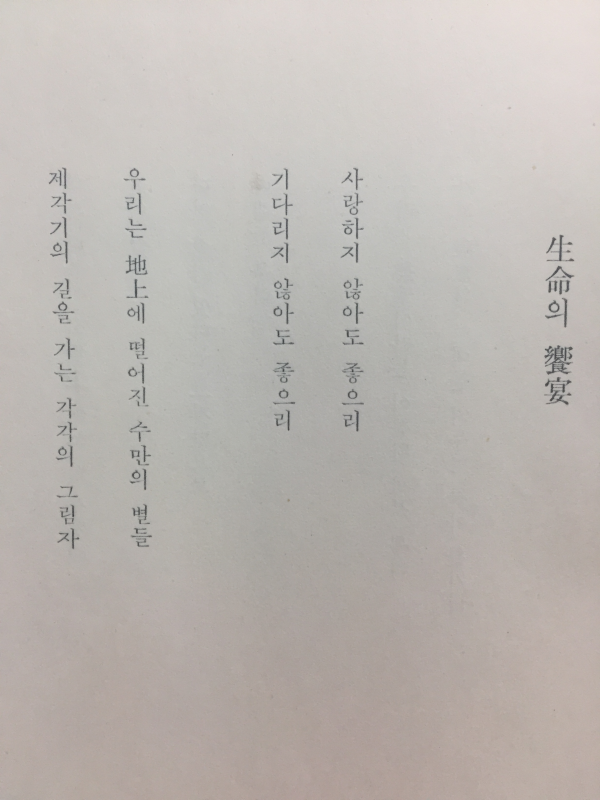 生命의 饗宴
사랑하지 않아도 좋으리
기다리지 않아도 좋으리
우리는 地上에 떨어진 수만의 별들
제각기의 길을 가는 각각의 그림자